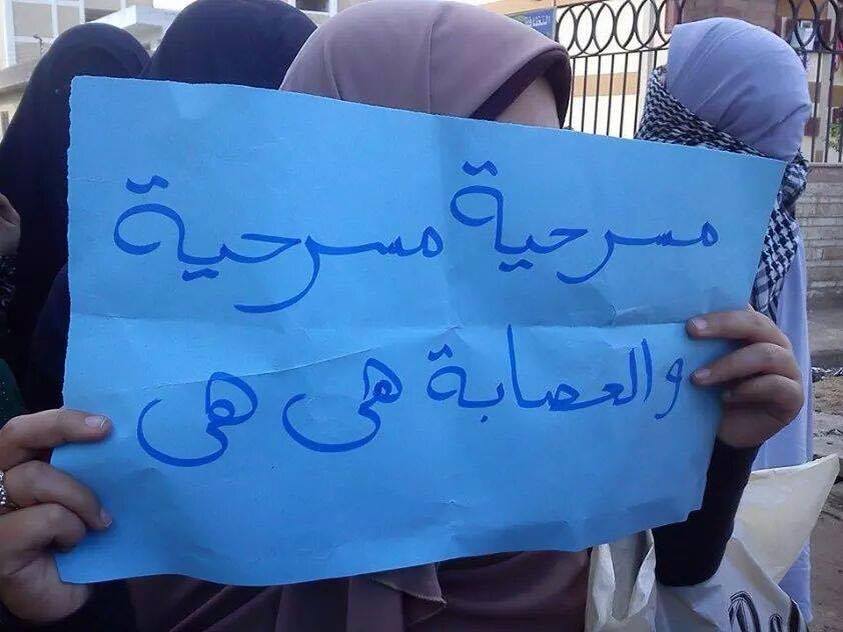 مسرحية مسرحية
والعصابة هى هى